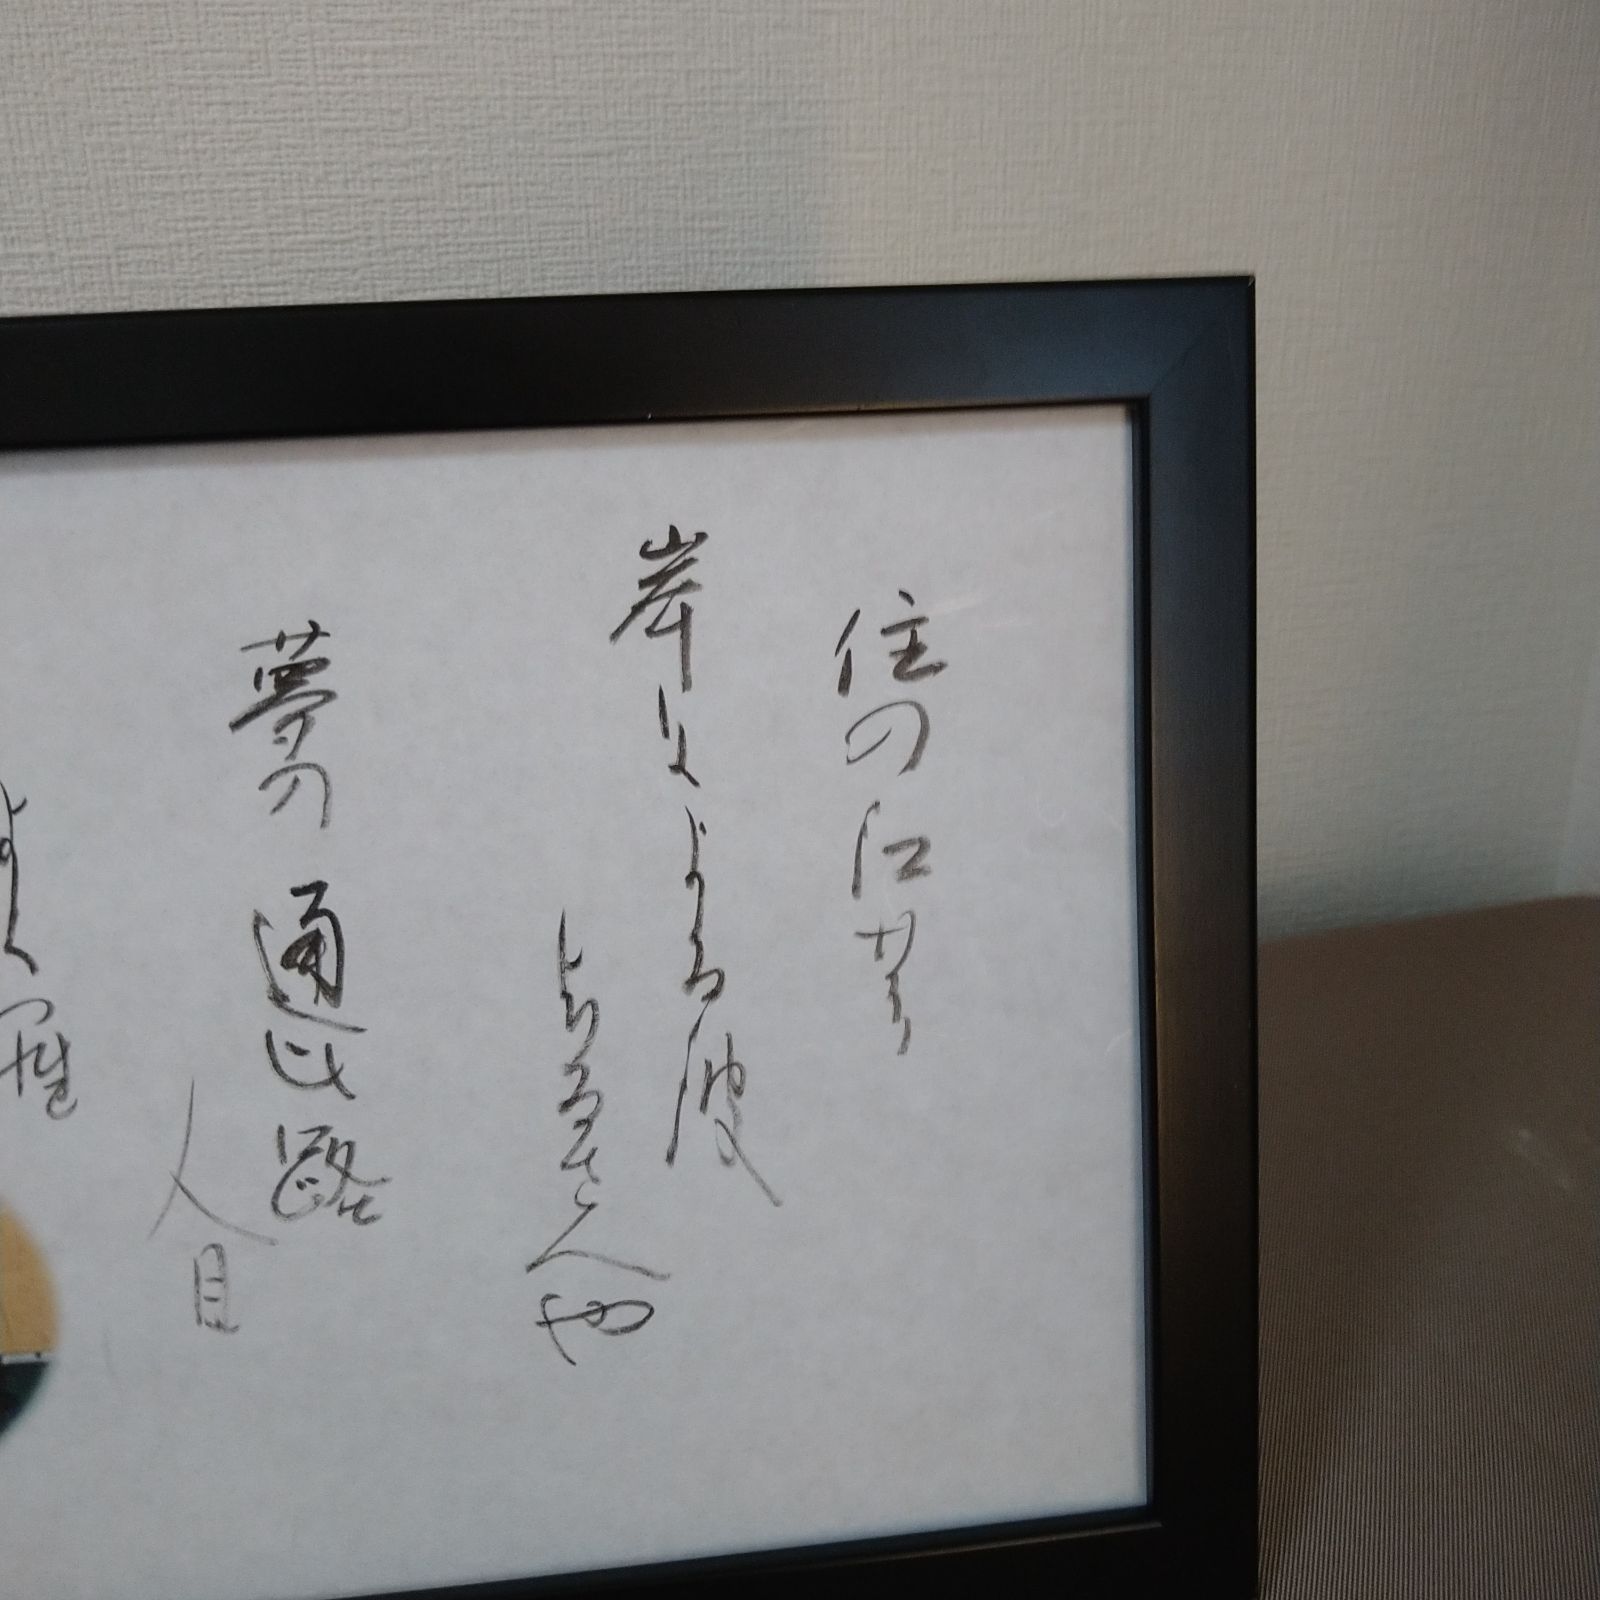 住の江の
岸による波
よるさへや
夢の通ひ路
人目
よく羅